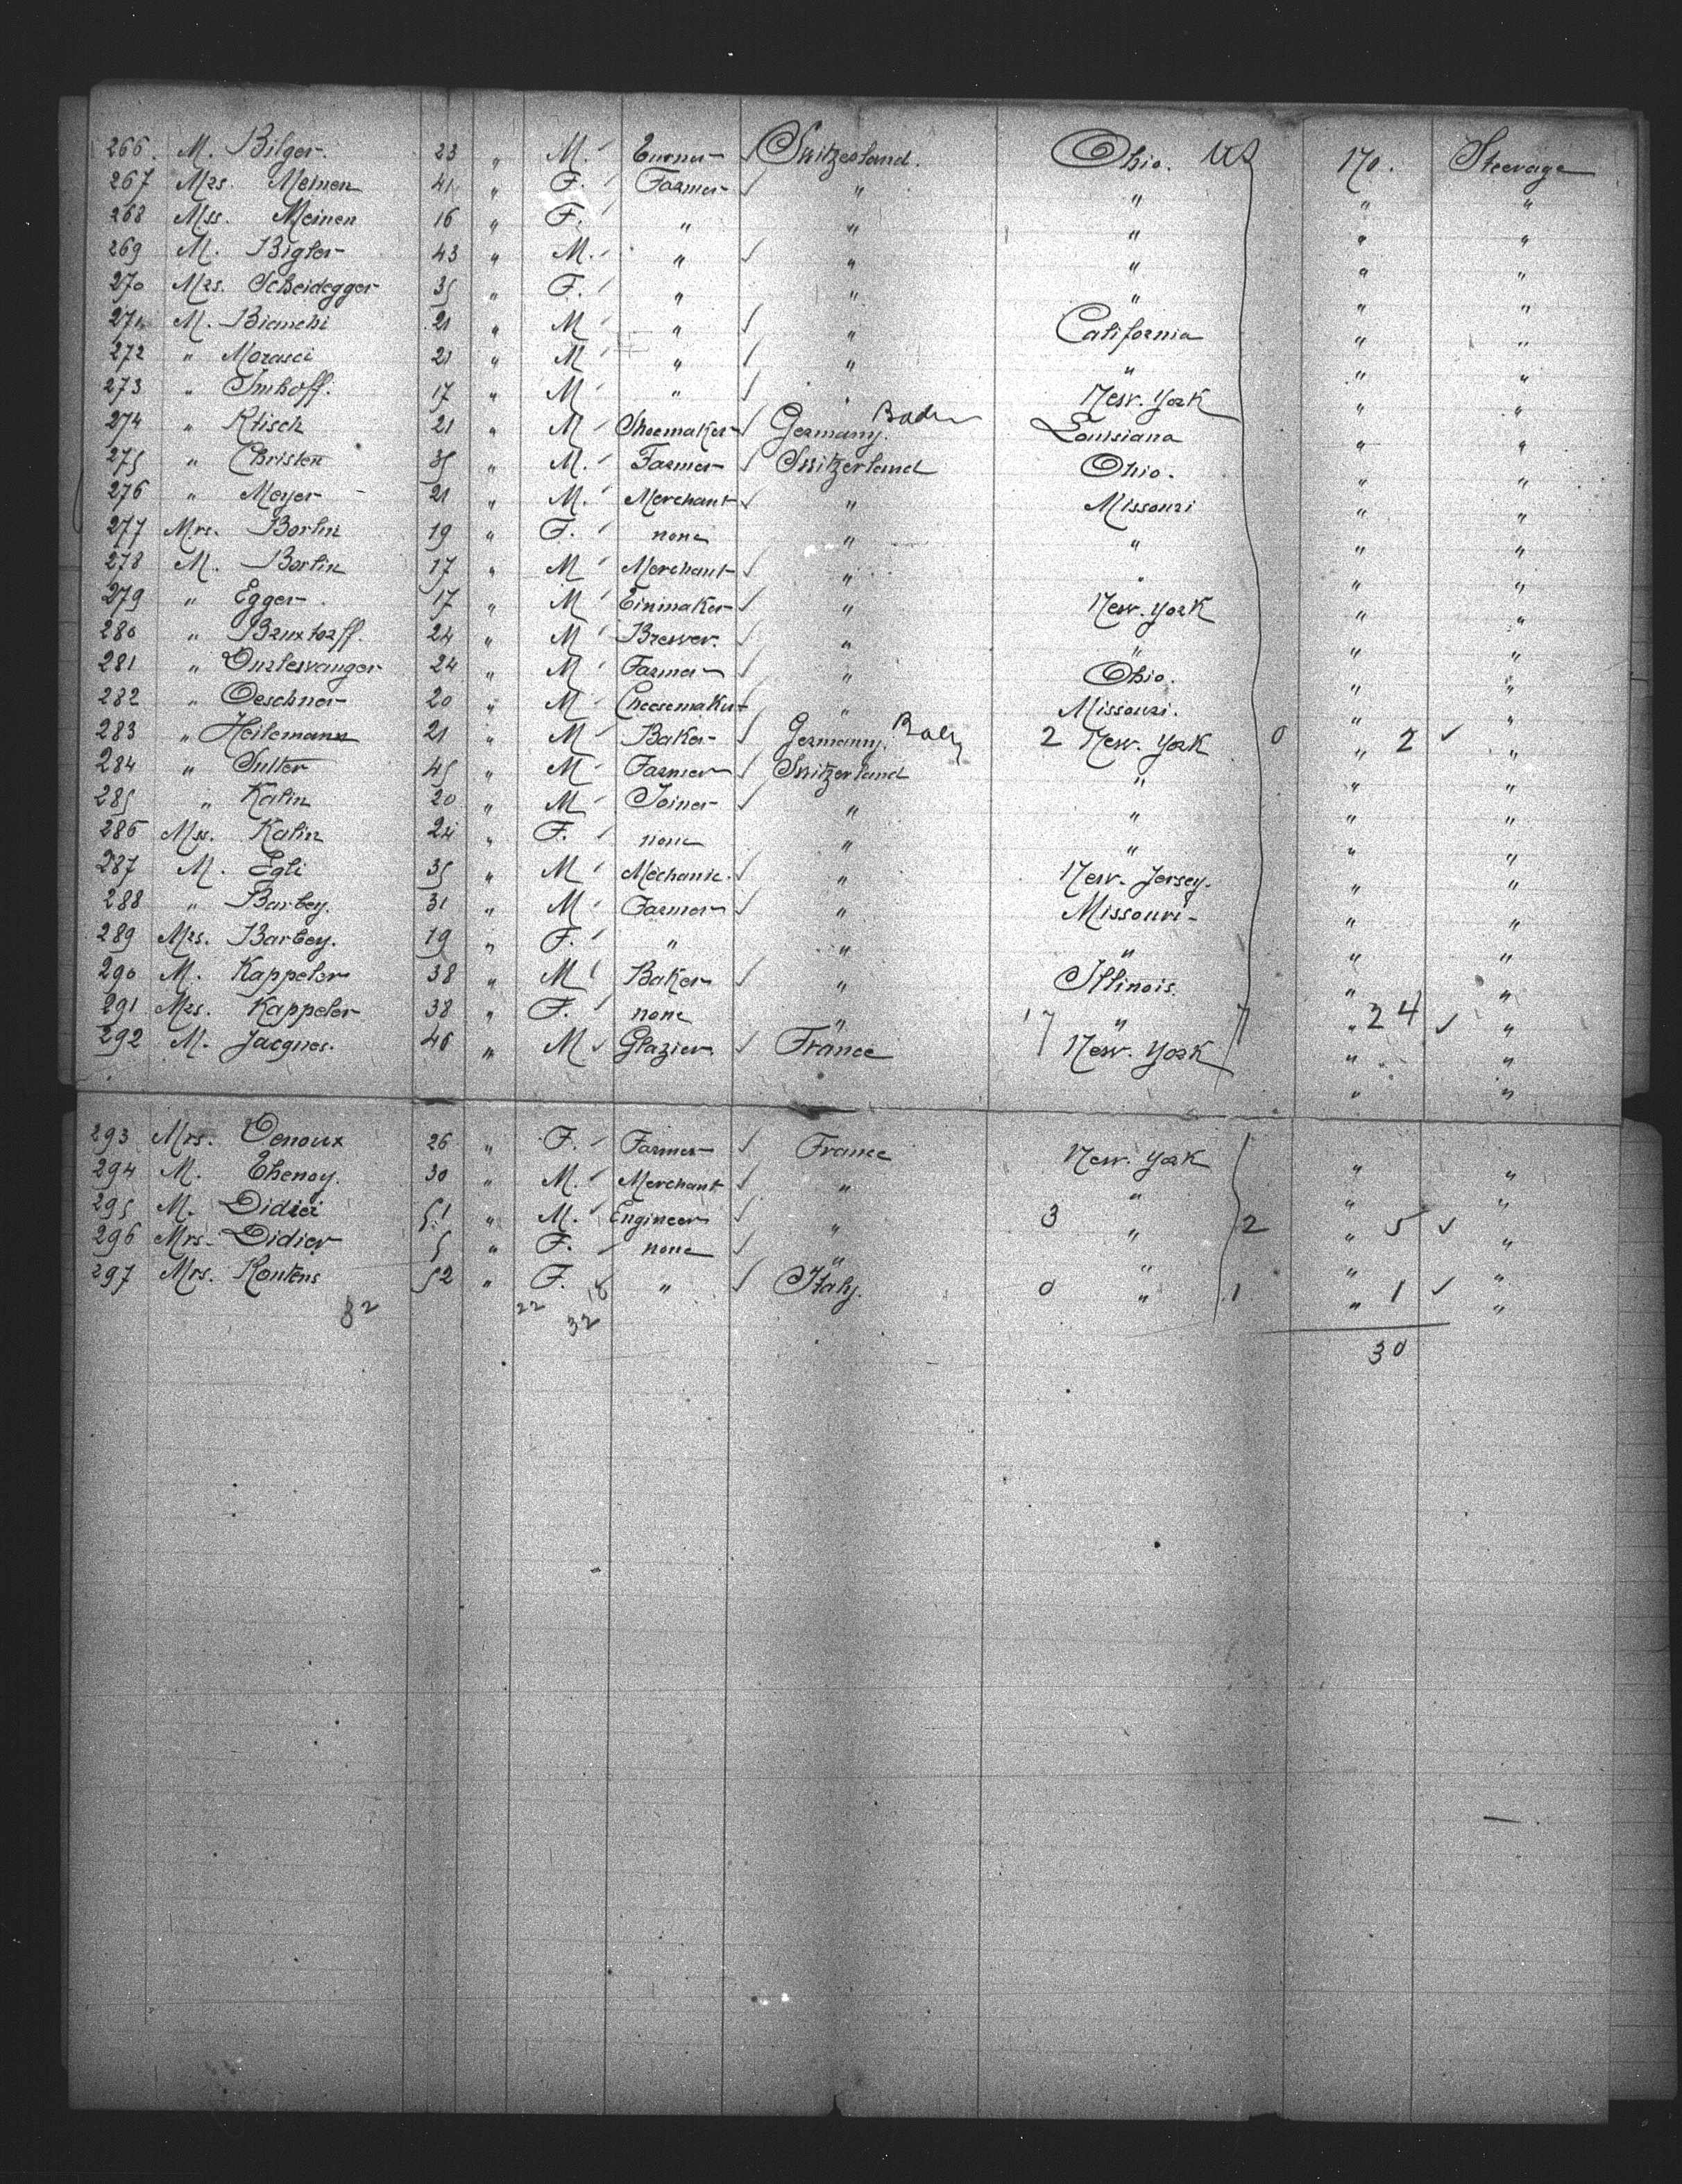 266. M. Bilger. 23 " M. Turner Switzerland. Ohio. US 170. Steerage
267 Mrs. Meinen 41 " F. Farmer " " " "
268 Mss. Meinen 16 " F. " " " " "
269 M. Bigler 43 " M. " " " " "
270 Mrs. Scheidegger 35 " F. " " " " "
271 M. Bianchi 21 " M " " California " "
272 " Morasci 21 " M " " " " "
273 " Imhoff. 17 " M " " New. York " "
274 " Klisch 21 " M Shoemaker Germany. Baden Louisiana " "
275 " Christen 35 " M. Farmer Switzerland Ohio. " "
276 " Meyer 21 " M. Merchant " Missouri " "
277 Mrs. Borlin 19 " F. none " " " "
278 M. Borlin 17 " M Merchant " " " "
279 " Egger 17 " M " New. York " "
280 " Bruxtorff. 24 " M Brewer. " " " "
281 " 24 " M Farmer " Ohio. " "
282 " Oeschner 20 " M Cheesemaker " Missouri. " "
283 " Heilemann 21 " M Baker Germany. 2 New. York 0 " 2 ✓ "
284 " Sutter 45 " M Farmer Switzerland " " "
285 " Kalin 20 " M Joiner " " " "
286 Mss. Kalin 24 " F. none " " " "
287 M. Egli 35 " M Mechanic. " New. Jersey. " "
288 " Barbey. 31 " M Farmer " Missouri " "
289 Mrs. Barbey. 19 " F. " " " " "
290 M. Kappeler 38 " M Baker " Illinois. " "
291 Mrs. Kappeler 38 " F. none " 17 " 7 " 24 ✓ "
292 M. Jacques. 46 " M Glazier. France New. York " "
" "
293 Mrs. 26 " F. Farmer France New. York " "
294 M. Thenoy. 30 " M. Merchant " " " "
295 M. Didier 51 " M. Engineer " 3 " 2 " 5 ✓ "
296 Mrs. Didier 5 " F. none " " " "
297 Mrs. Kontens 52 " F. " Italy. 0 " 1 " 1 ✓ "
32 22 18
32
30